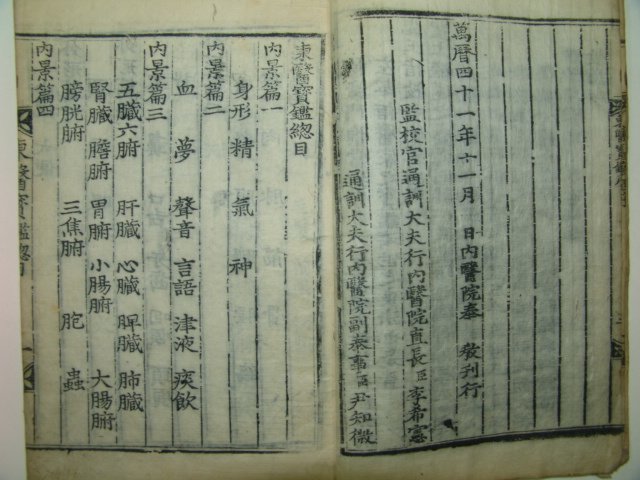 萬曆四十一年十一月 日內醫院奉 敎刊行
監校官通訓大夫行內醫院直長臣李希憲
通訓大夫行內醫院副奉事臣尹知微
東醫寶鑑總目
內景篇一
身形 精 氣 神
內景篇二
血 夢 聲音 言語 津液 痰飮
內景篇三
五臟六腑 肝臟 心臟 脾臟 肺臟
腎臟 膽腑 胃腑 小腸腑 大腸腑
膀胱腑 三焦腑 胞 蟲
內景篇四
東醫寶鑑總目 一